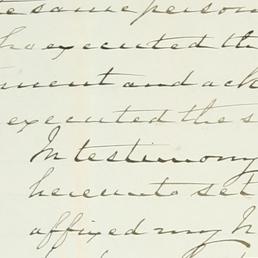 e same person
ho executed th
ment and ack
executed the s
In testimony
hereunto set
affixed my N